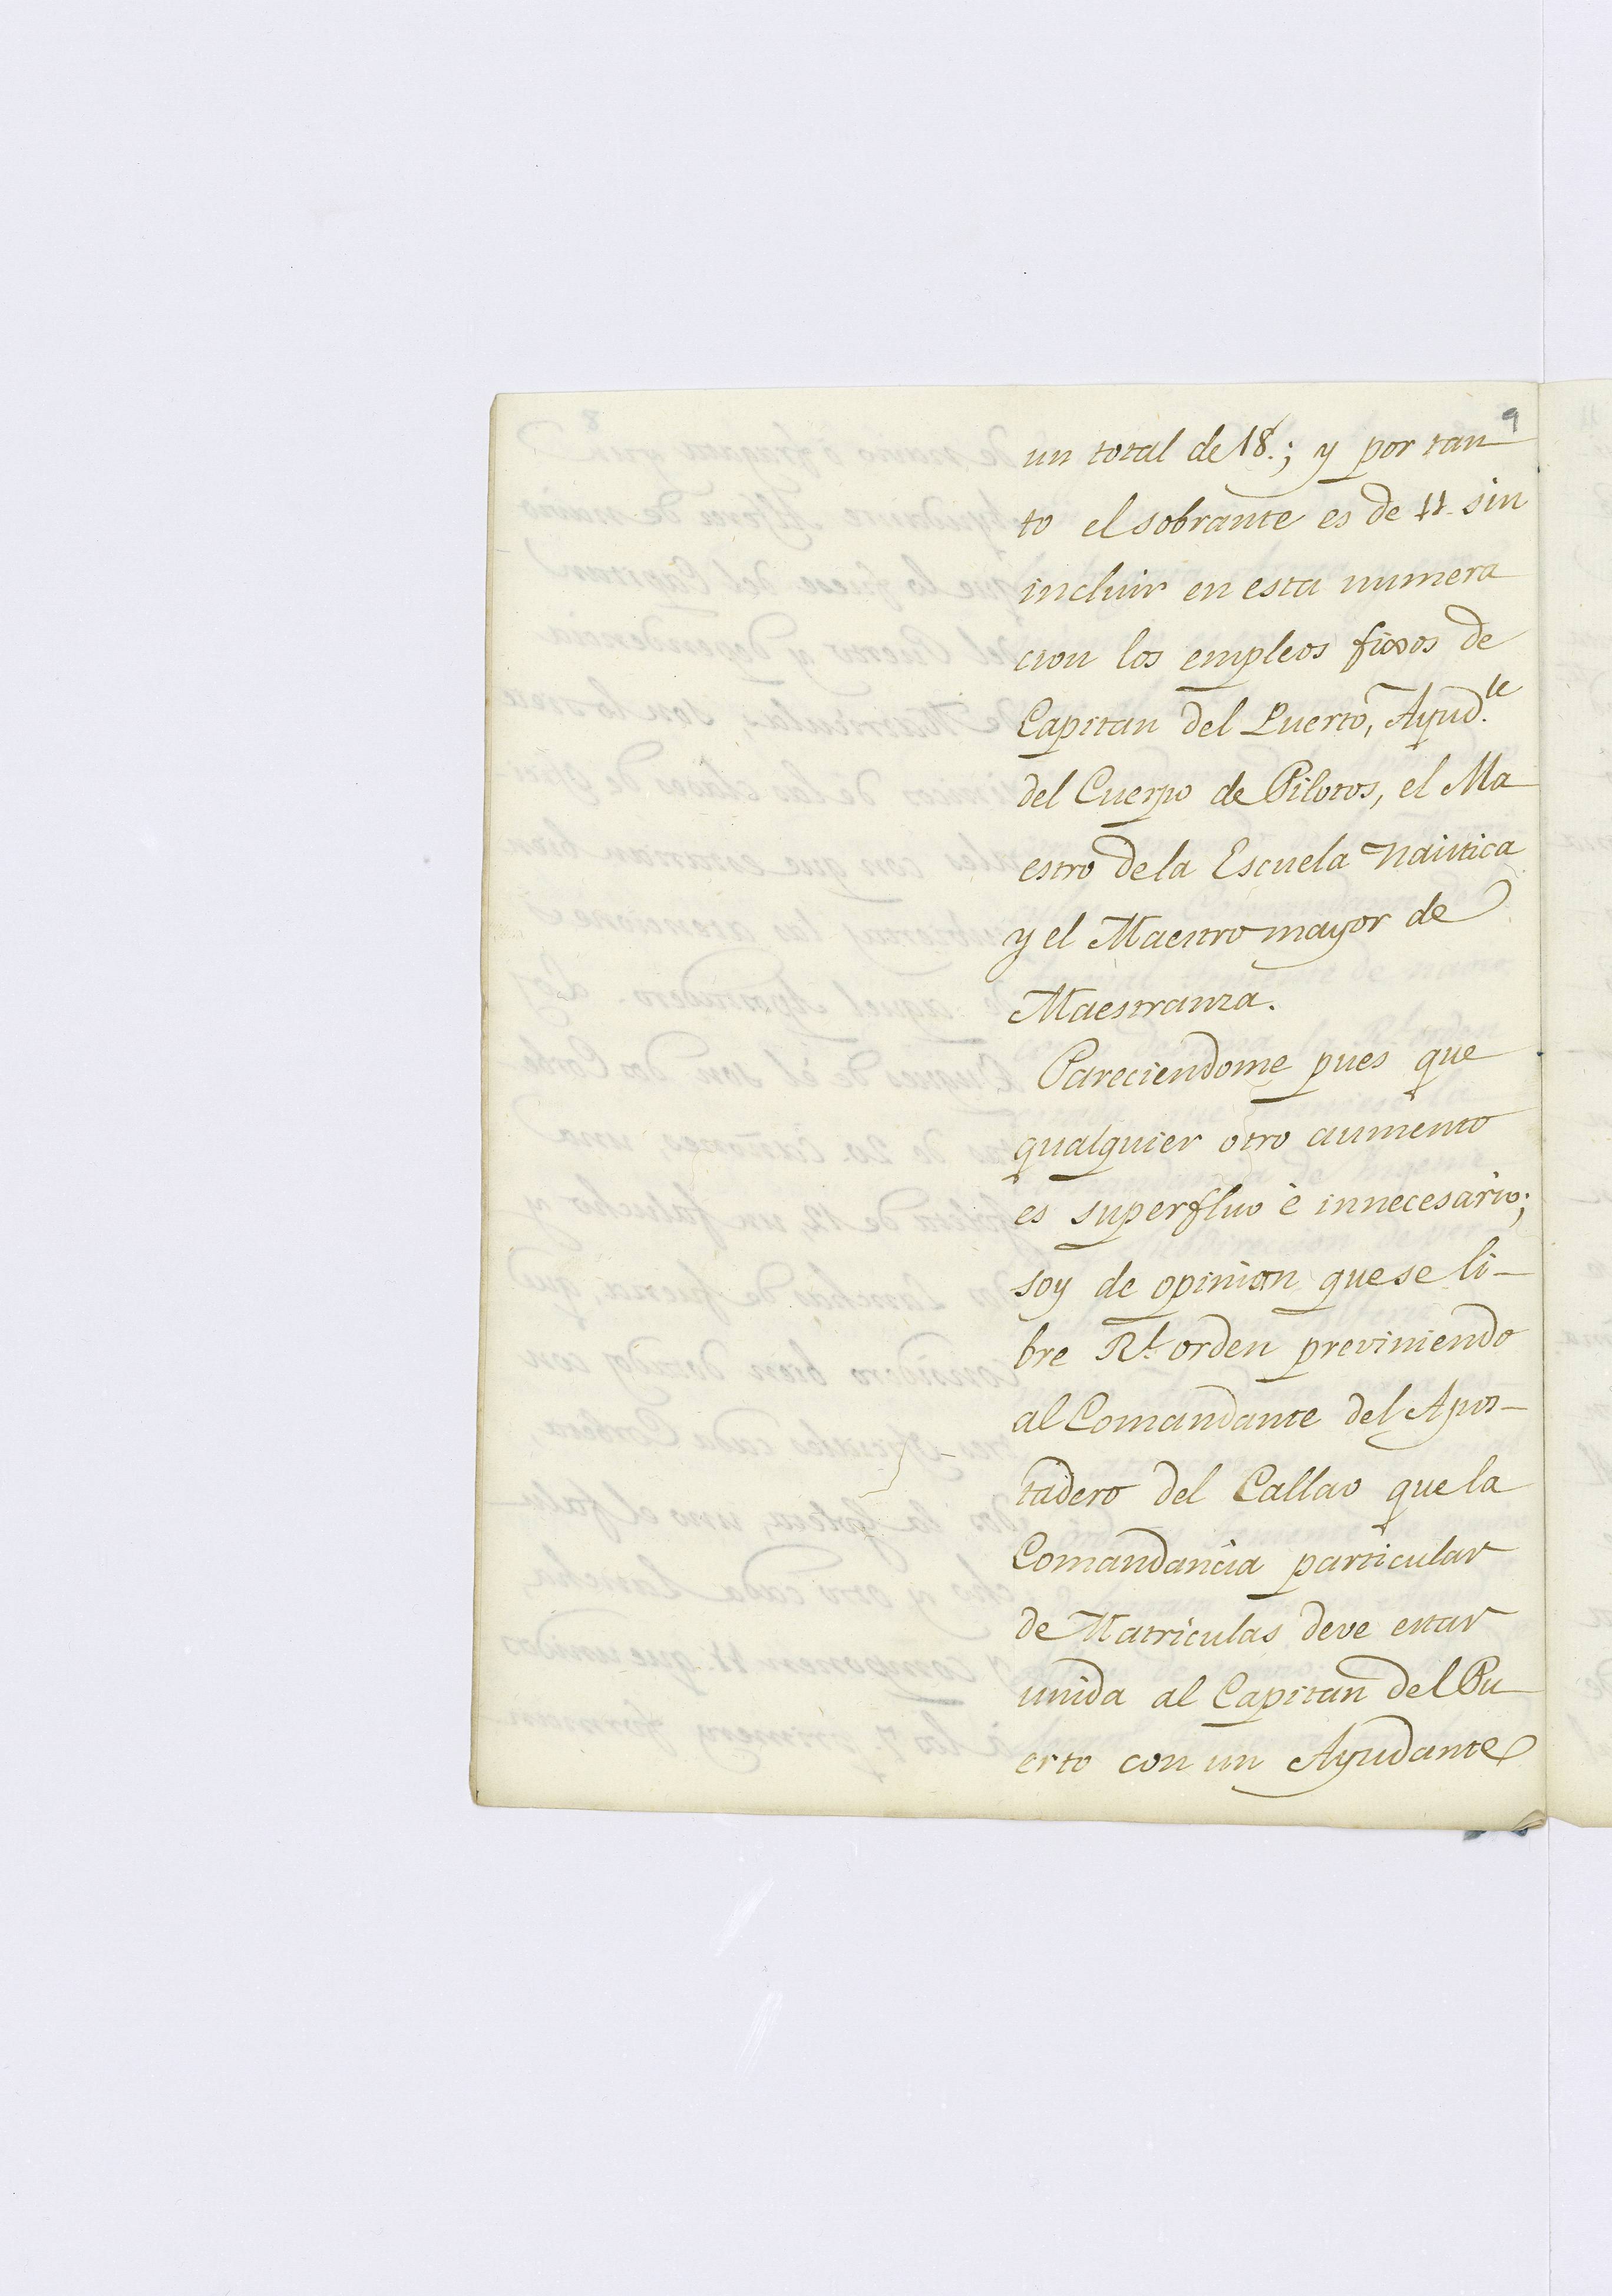 9
un total de 18.; y por tan
to el sobrante es de 11. sin
incluir en esta numera
cion los empleos fixos de
Capitan del Puerto, Ayud.te
del Cuerpo de Pilotos, el Ma
estro de la Escuela Naútica
y el Maestro mayor de
Maestranza.
Pareciendome pues que
qualquier otro aumento
es superfluo è innecesario;
soy de opinion que se li-
bre Rl. orden previniendo
al Comandante del Apos-
tadero del Callao que la
Comandancia particular
de Matriculas deve estar
unida al Capitan del Pu
erto con un Ayudante